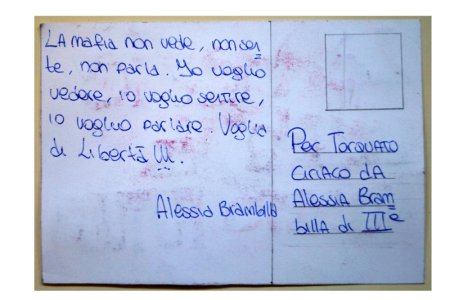 LA mafia non vede, non sen
te, non parla. Io voglio
vedere, io voglio sentire,
io voglio parlare. Voglia
di Libertà !!!.
Alessia Brambilla
Per Torquato
Ciriaco dA
Alessia Bram
billa di III e